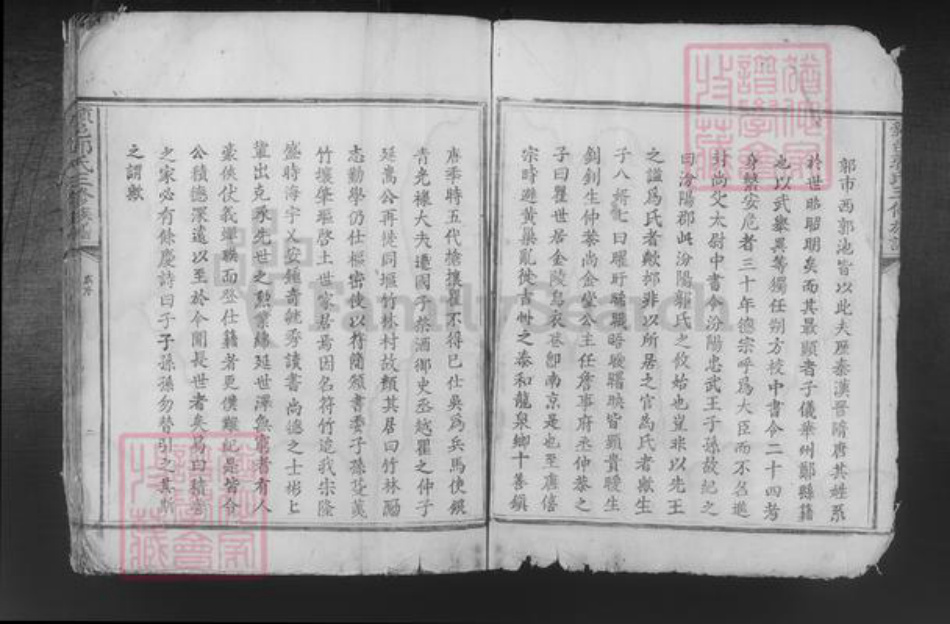 郭市西郭池皆以此夫歷秦漢晉隋唐其姓系
於世昭昭明矣而其最顯者子儀華州鄭縣籍
也以武舉異等獨任朔方校中書令二十四考
身繫安危者三十年德宗呼為大臣而不名進
封尚父太尉中書令汾陽忠武王子孫故紀之
曰汾陽郡此汾陽郭氏之攸始也豈非以先王
之謚為氏者歟抑非以所居之官為氏者歟生
子八婿七曰曜旰晞曖晤曖曙映皆顯貴曖生
釗釗生仲恭尚金堂公主任詹事府丞仲恭之
子曰瞿世居金陵烏衣巷卽南京是也至唐僖
宗時避黄巢亂徙吉州之泰和龍泉鄉十善鎮
唐季時五代槍攘瞿不得已仕吳為兵馬使鎮
青光祿大夫遷國子祭酒御史丞越瞿之仲子
延嵩公再徙同堰竹林村故顏其居曰竹林勵
志勤學仍仕樞密使以符簡頒書委子孫
竹壤肇啓土世家居焉因名符竹迨我宗隆
盛時海宇乂安鍾奇毓秀讀書尚德之士彬上
輩出克承先世之勳業綿延世澤無窮者有人
豪俠伏義蟬聯而登仕籍者更僕難記是皆令
公積德深遠以至於今開長世者矣易曰積善
之家必有餘慶詩曰子子孫孫勿替引之其斯
之謂歟
FamilySearch